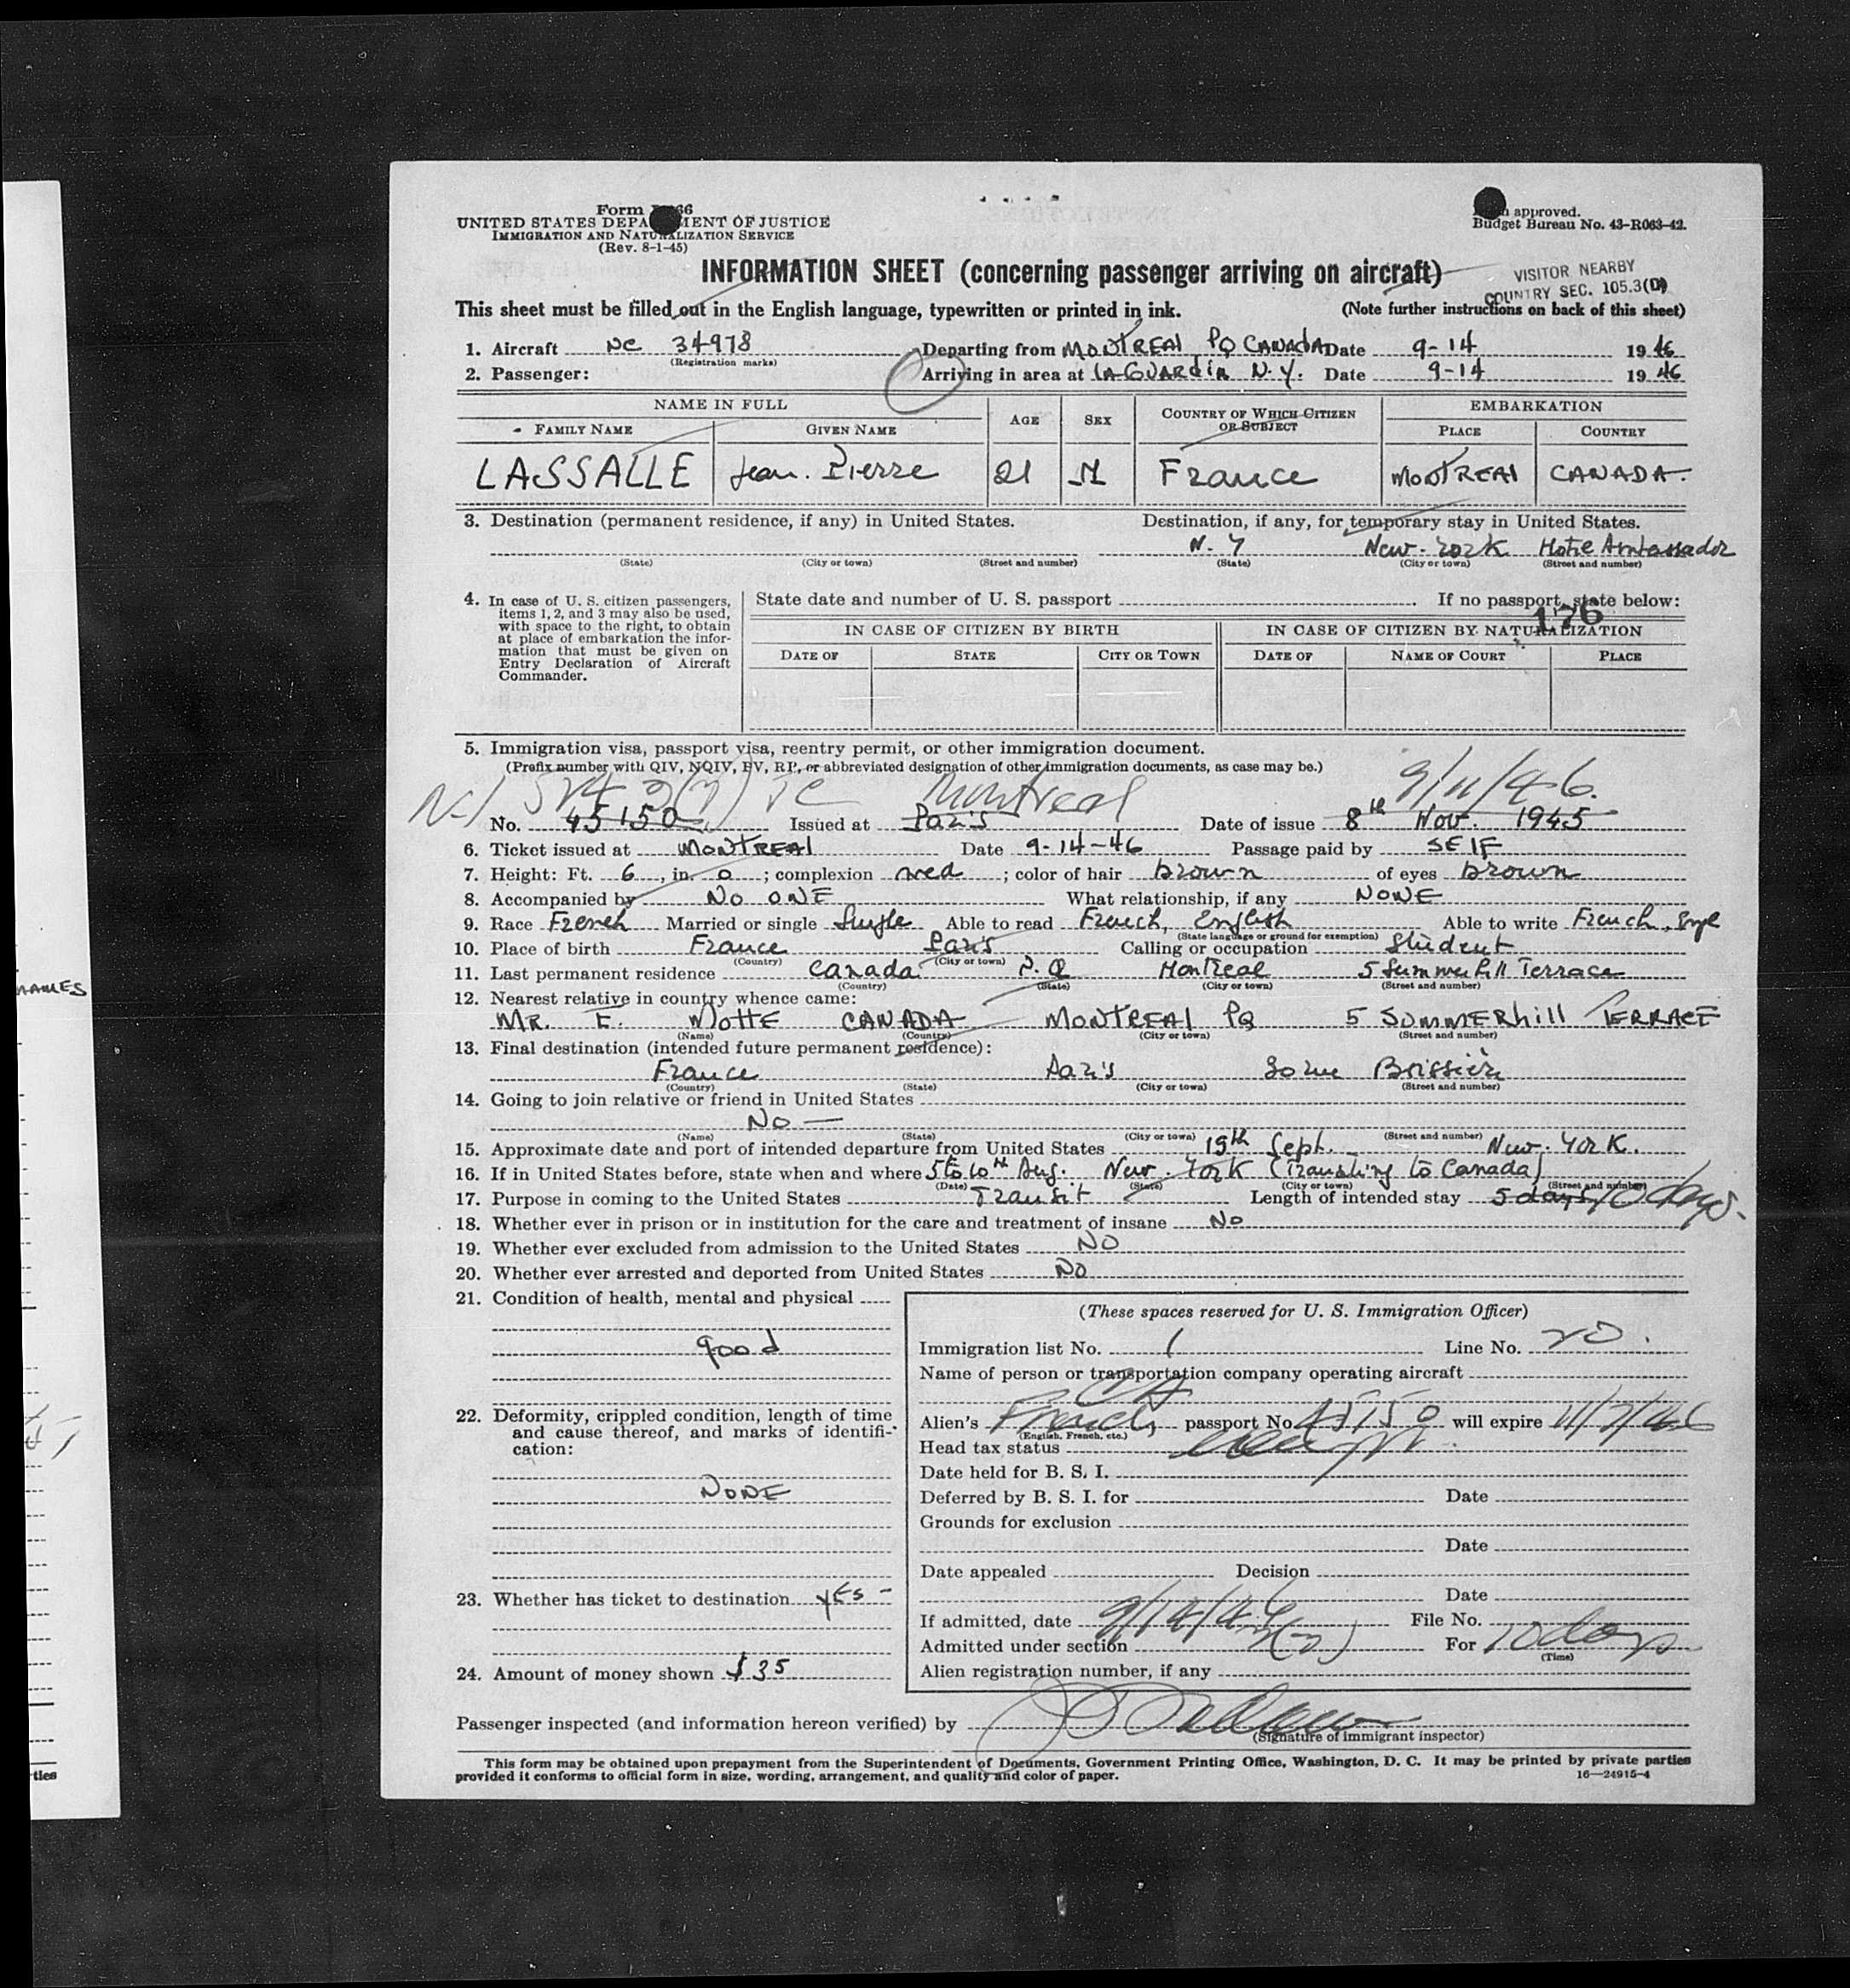 Form 66
UNITED STATES DEPA MENT OF JUSTICE
IMMIGRATION AND NATURALIZATION SERVICE
(Rev. 8-1-45)
approved.
Budget Bureau No. 43-R063-42.
INFORMATION SHEET (concerning passenger arriving on aircraft)
VISITOR NEARBY
COUNTRY SEC. 105.3(D)
This sheet must be filled out in the English language, typewritten or printed in ink. (Note further instructions on back of this sheet)
1. Aircraft NC 34978 Departing from MONTREAL PQ CANADA Date 9-14 1946
(Registration marks)
2. Passenger: Arriving in area at LAGUARdiA N.Y. Date 9-14 1946
NAME IN FULL AGE SEX COUNTRY OF WHICH CITIZEN OR SUBJECT EMBARKATION
FAMILY NAME GIVEN NAME PLACE COUNTRY
LASSALLE Jean. Pierre 21 M France MONTREAL CANADA.
3. Destination (permanent residence, if any) in United States. Destination, if any, for temporary stay in United States.
N.Y New-York Hotel Ambassador
(State) (City or town) (Street and number) (State) (City or town) (Street and number)
4. In case of U. S. citizen passengers, items 1, 2, and 3 may also be used, with space to the right, to obtain at place of embarkation the information that must be given on Entry Declaration of Aircraft Commander.
State date and number of U. S. passport If no passport, state below:
176
IN CASE OF CITIZEN BY BIRTH IN CASE OF CITIZEN BY NATURALIZATION
DATE OF STATE CITY OR TOWN DATE OF NAME OF COURT PLACE
5. Immigration visa, passport visa, reentry permit, or other immigration document.
(Prefix number with QIV, NQIV, PV, RP, or abbreviated designation of other immigration documents, as case may be.)
Montreal 9/11/46.
No. 45150 Issued at Paris Date of issue 8th Nov. 1945
6. Ticket issued at MONTREAL Date 9-14-46 Passage paid by SELF
7. Height: Ft. 6, in. 0; complexion med; color of hair brown of eyes brown
8. Accompanied by NO ONE What relationship, if any NONE
9. Race French Married or single Single Able to read French, English Able to write French, Engl
(State language or ground for exemption)
10. Place of birth France Paris Calling or occupation Student
(Country) (City or town)
11. Last permanent residence Canada P.Q Montreal 5 Summerhill Terrace
(Country) (State) (City or town) (Street and number)
12. Nearest relative in country whence came:
MR. E. MOTTE CANADA MONTREAL PQ 5 SUMMERhill TERRACE
(Name) (Country) (City or town) (Street and number)
13. Final destination (intended future permanent residence):
France Paris Boissière
(Country) (State) (City or town) (Street and number)
14. Going to join relative or friend in United States
No —
(Name) (State) (City or town) (Street and number)
15. Approximate date and port of intended departure from United States 19th Sept. New-York.
16. If in United States before, state when and where 5 to 10th Aug. New-York (Transiting to Canada)
(Date) (State) (City or town) (Street and number)
17. Purpose in coming to the United States Transit Length of intended stay 5 days 10 days.
18. Whether ever in prison or in institution for the care and treatment of insane No
19. Whether ever excluded from admission to the United States NO
20. Whether ever arrested and deported from United States NO
21. Condition of health, mental and physical
good
22. Deformity, crippled condition, length of time and cause thereof, and marks of identification:
NONE
23. Whether has ticket to destination YES -
24. Amount of money shown $ 35
(These spaces reserved for U. S. Immigration Officer)
Immigration list No. 1 Line No. 20.
Name of person or transportation company operating aircraft
Alien's French passport No. 45150 will expire 11/7/46
(English, French, etc.)
Head tax status exempt
Date held for B. S. I.
Deferred by B. S. I. for Date
Grounds for exclusion
Date
Date appealed Decision
Date
If admitted, date 9/14/46 File No.
Admitted under section 3(2) For 10 days
(Time)
Alien registration number, if any
Passenger inspected (and information hereon verified) by
(Signature of immigrant inspector)
This form may be obtained upon prepayment from the Superintendent of Documents, Government Printing Office, Washington, D. C. It may be printed by private parties
provided it conforms to official form in size, wording, arrangement, and quality and color of paper. 16—24915-4
NAMES
ties